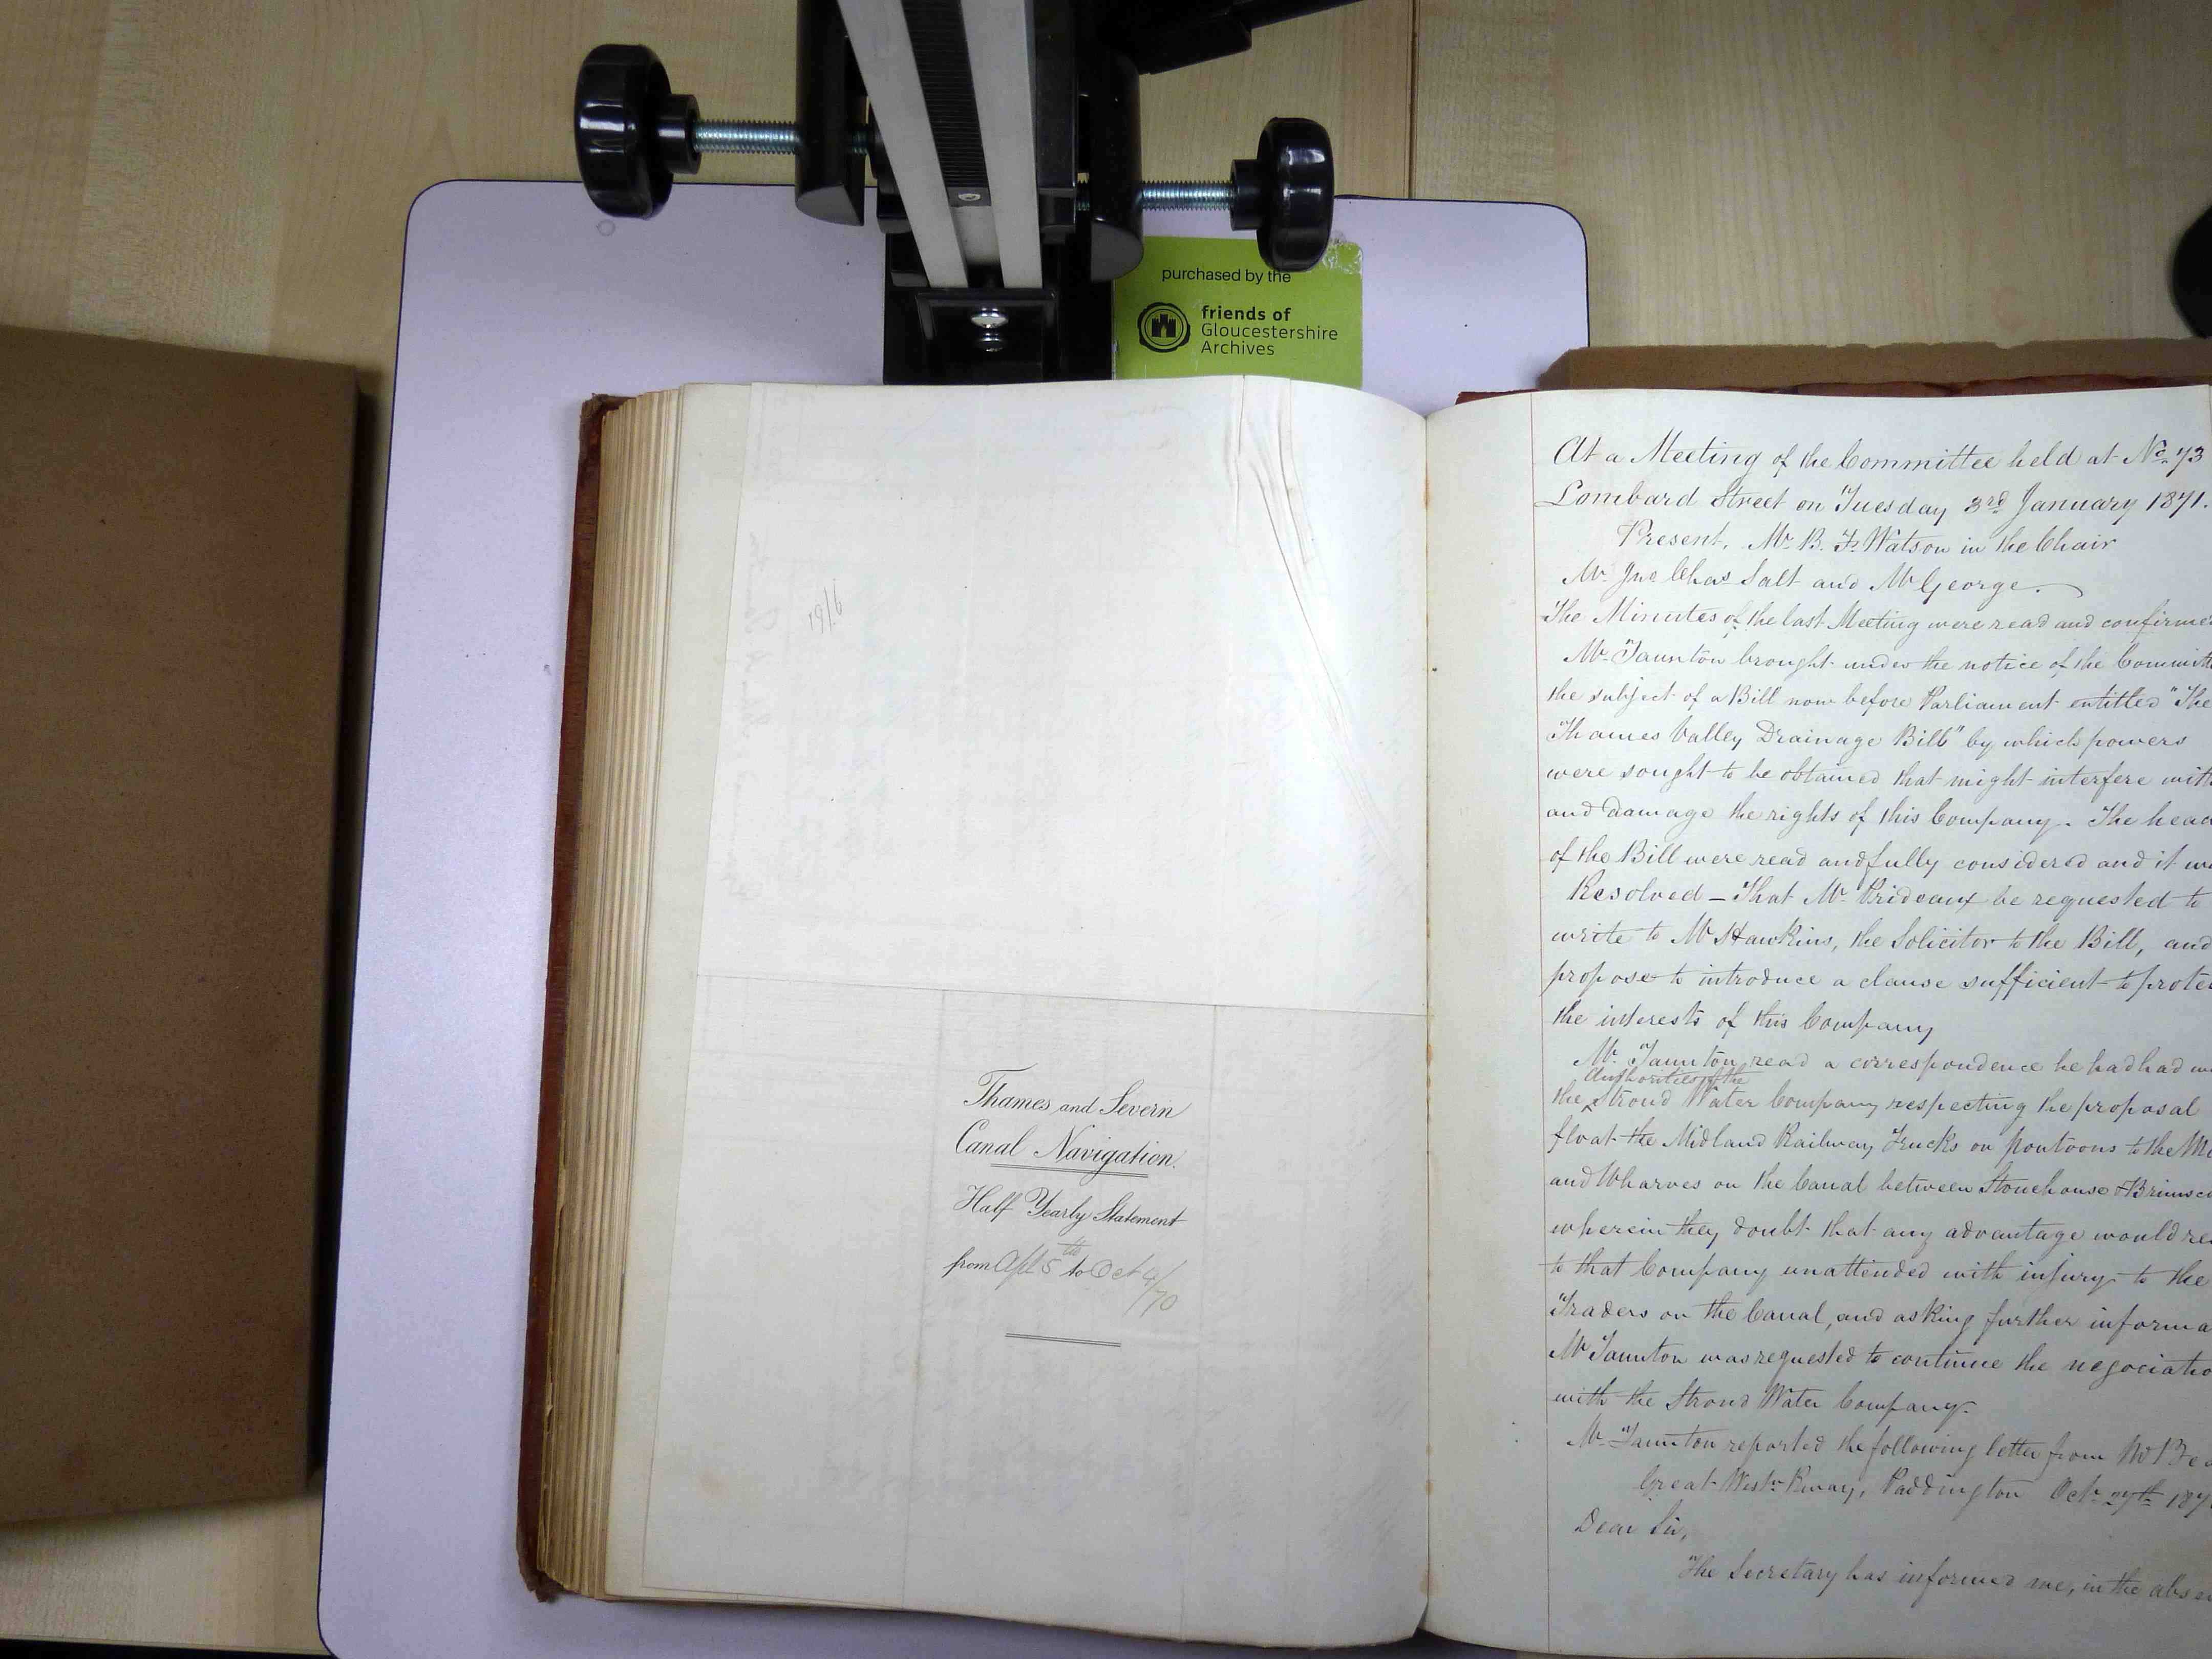 purchased by the
friends of
Gloucestershire
Archives
Thames and Severn
Canal Navigation.
Half Yearly Statement
from Apl 5th to Oct 4/70
At a Meeting of the Committee held at No. 73
Lombard Street on Tuesday 3rd January 1871.
Present, Mr. B. F. Watson in the Chair
Mr. Jno Chas Salt and Mr George.
The Minutes of the last Meeting were read and confirme
Mr. Taunton brought under the notice of the Committ
the subject of a Bill now before Parliament entitled "The
Thames Valley Drainage Bill" by which powers
were sought to be obtained that might interfere with
and damage the rights of this Company. The head
of the Bill were read and fully considered and it wa
Resolved – That Mr. Prideaux be requested to
write to Mr Hawkins, the Solicitor to the Bill, and
propose to introduce a clause sufficient to protec
the interests of this Company
Mr. Taunton read a correspondence he had had w
authorities of the
the Stroud Water Company respecting the proposal
float the Midland Railway Trucks on pontoons to the Mi
and Wharves on the Canal between Stonehouse & Brimsco
wherein they doubt that any advantage would re
to that Company unattended with injury to the
Traders on the Canal, and asking further informa
Mr Taunton was requested to continue the negociatio
with the Stroud Water Company.
Mr Taunton reported the following letter from Mr
Great Westn Rway, Paddington Octr 27th 187
Dear Sir,
The Secretary has informed me, in the abse